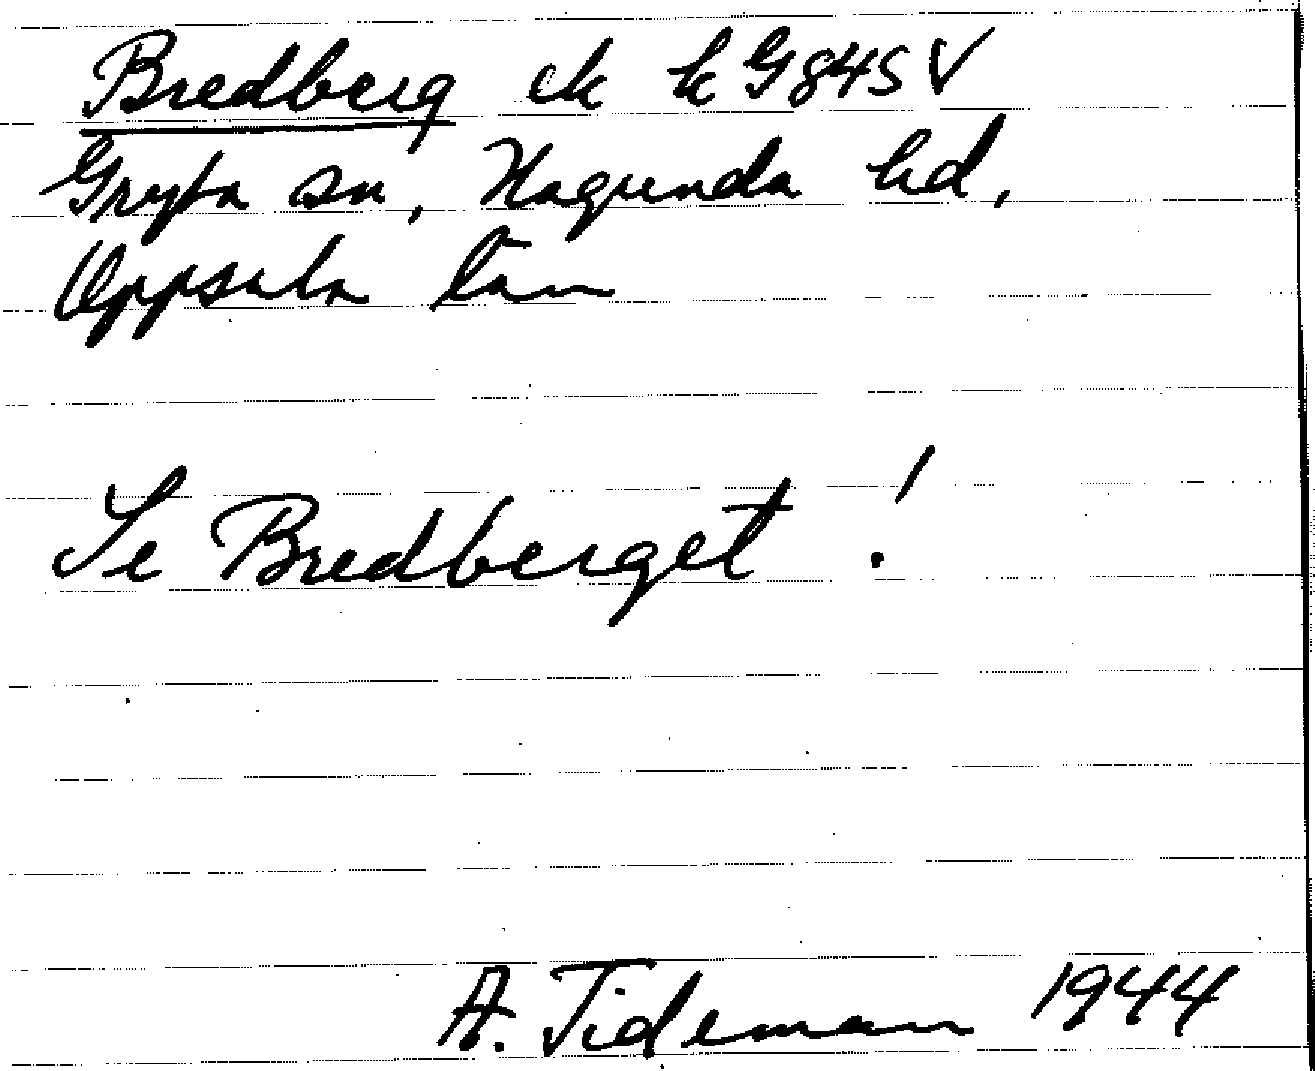 Bredberg ek k G845 V
Gryta sn, Hagunda hd,
Uppsala län
Se Bredberget !
A. Tideman 1944